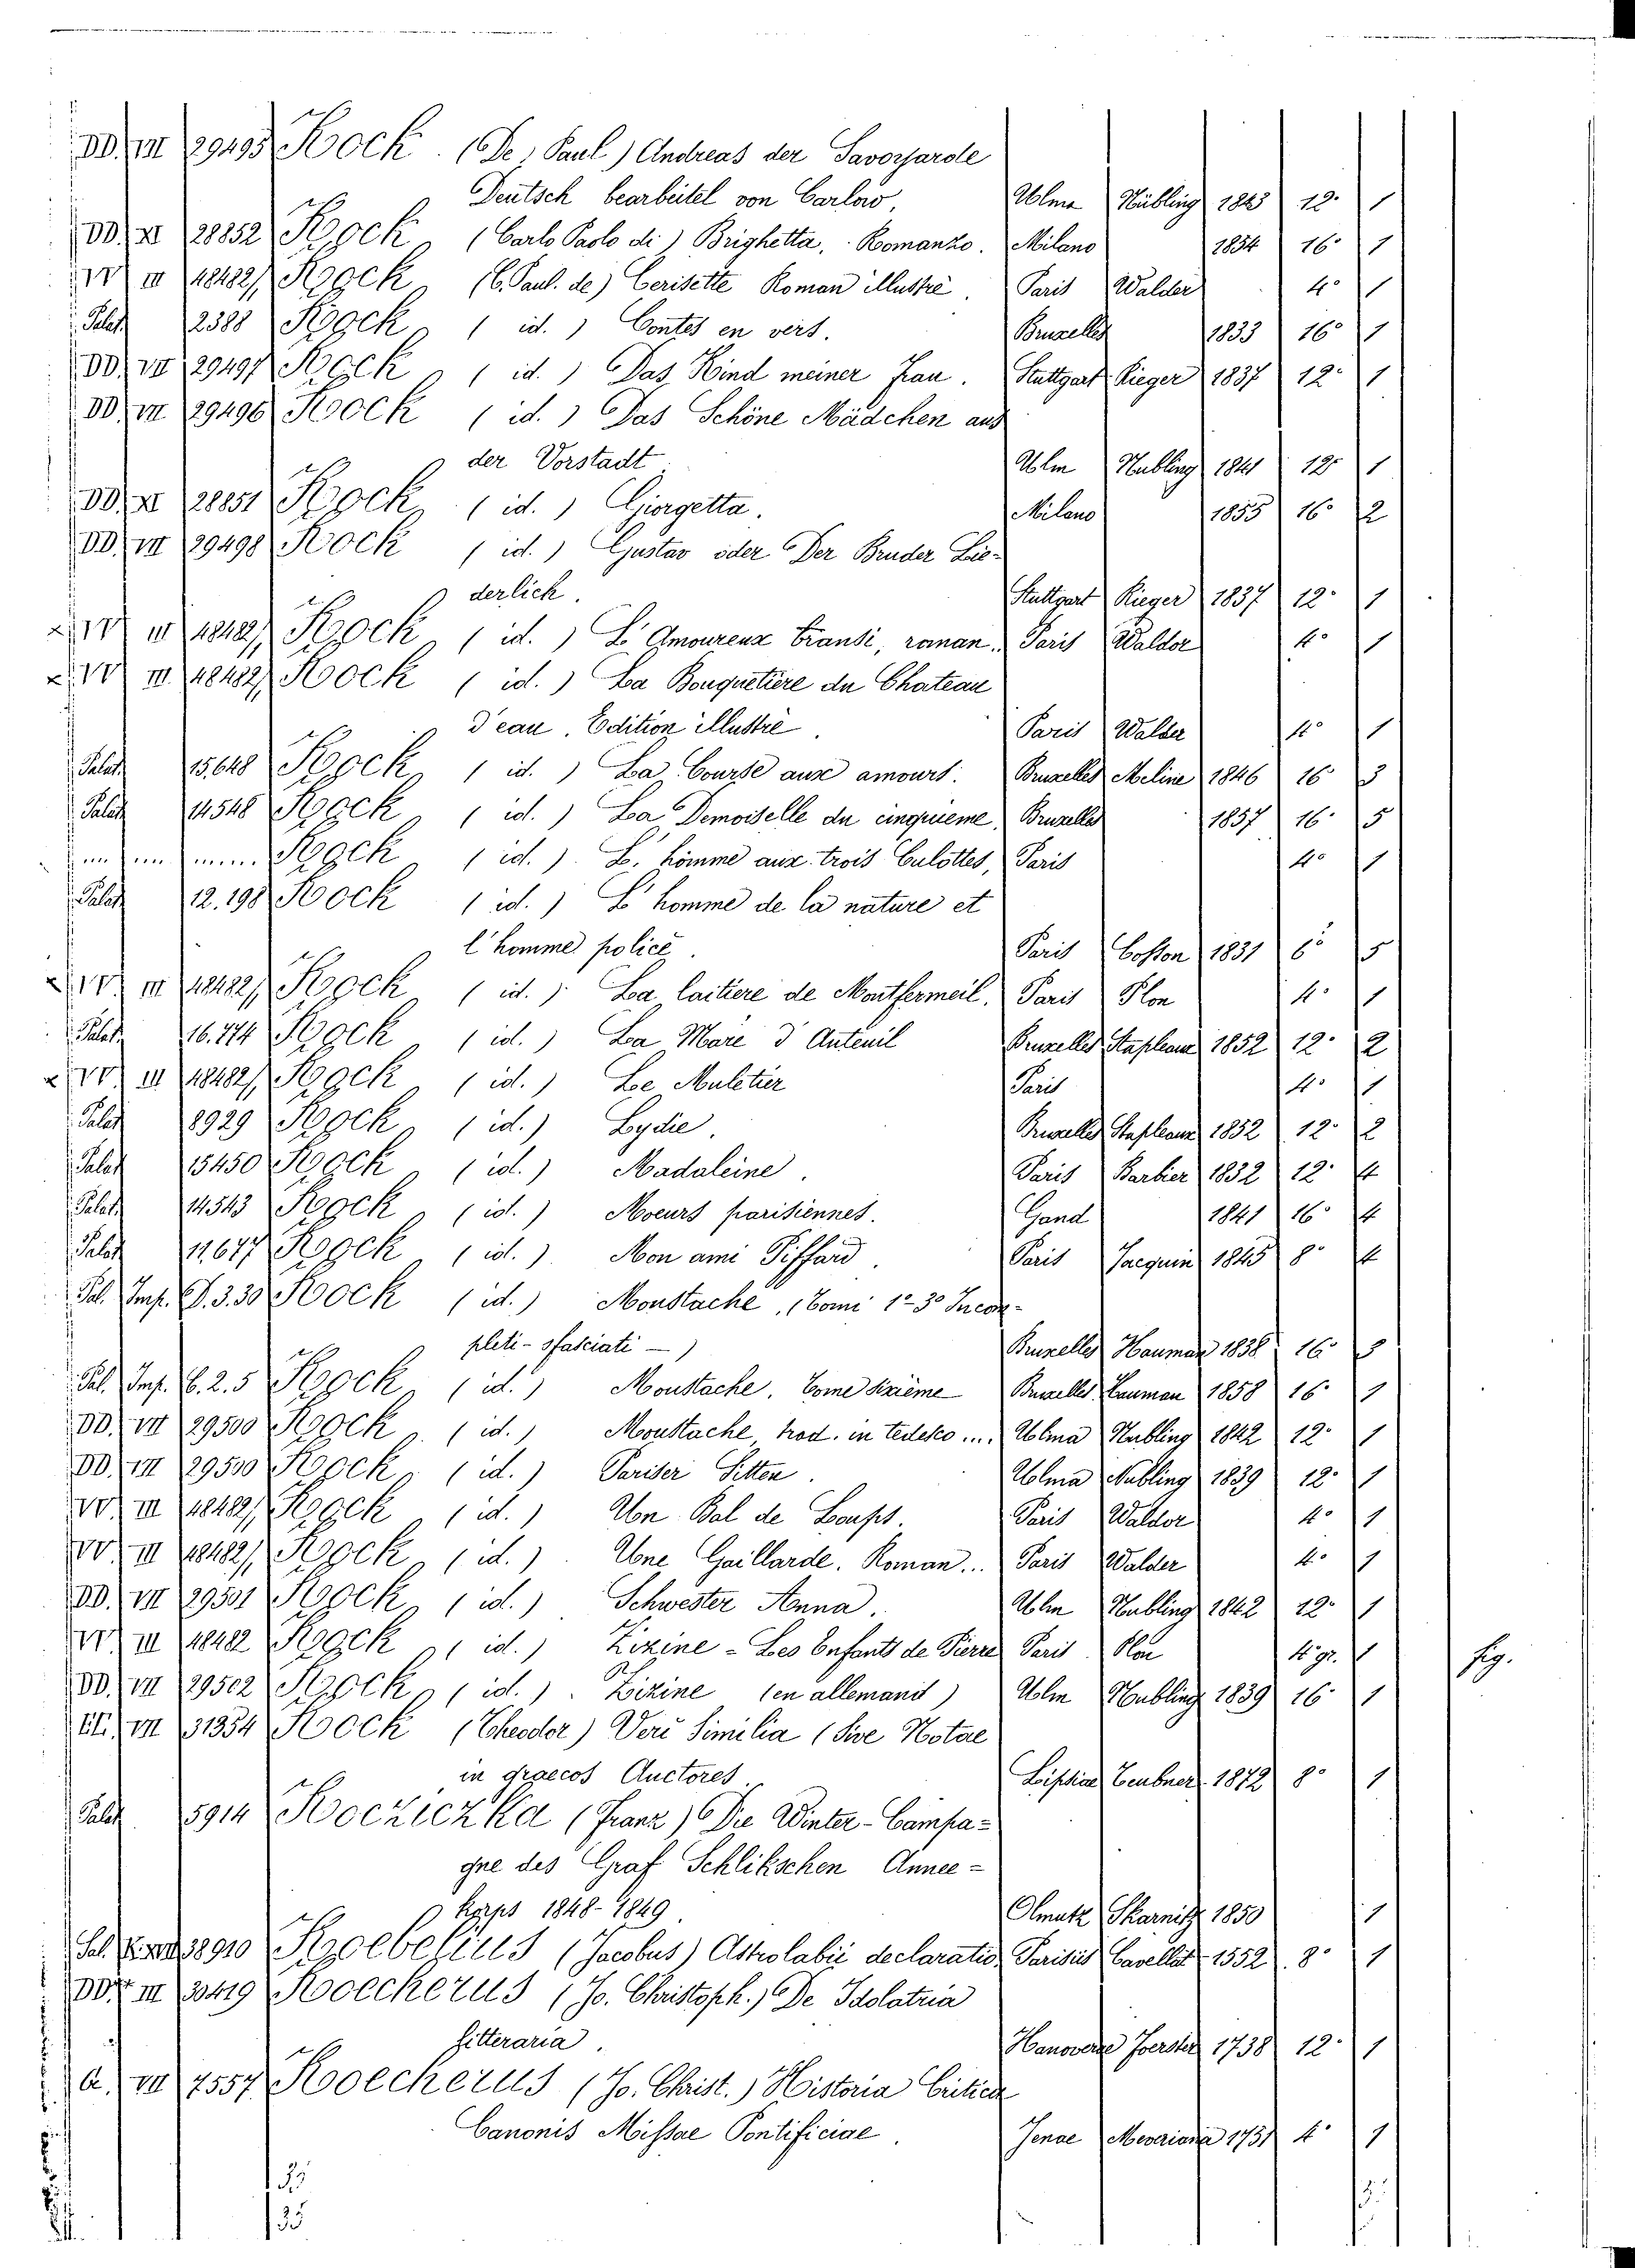 DD. VII 29495 Kock. (De, Paul) Andreas der Savoyarde
Deutsch bearbeitet von Carlow, Ulma Nübling 1843 12° 1
DD. XI 28852 Kock, (Carlo Paolo di) Brighetta, Romanzo. Milano 1854 16° 1
VV III 48482/ Kock, (C. Paul. de) Cerisette Roman illustré. Paris Walder 4° 1
Palat 2388 Kock, (id.) Contes en vers. Bruxelles 1833 16° 1
DD. VII 29497 Kock, (id.) Das Kind meiner Frau. Stuttgart Rieger 1837 12° 1
DD. VII 29496 Kock (id.) Das Schöne Mädchen aus
der Vorstadt. Ulm Nubling 1841 12° 1
DD. XI 28851 Kock, (id.) Giorgetta. Milano 1855 16° 2
DD. VII 29498 Kock (id.) Gustav oder Der Bruder Lie-
derlich. Stuttgart Rieger 1837 12° 1
x VV III 48482/ Kock, (id.) L' Amoureux transi, roman. Paris Waldor 4° 1
x VV III 48482/ Kock (id.) La Bouquetière du Chateau
d'eau. Edition illustré. Paris Walder 4° 1
Palat 15.648 Kock, (id.) La Course aux amours. Bruxelles Meline 1846 16° 3
Palat 14548 Kock, (id.) La Demoiselle du cinquieme, Bruxelles 1857 16° 5
Kock, (id.) L' homme aux trois Culottes, Paris 4° 1
Palat 12.198 Kock (id.) L' homme de la nature et
l'homme police. Paris Cosson 1831 6° 5
x VV. III 48482/ Kock, (id.) La laitiere de Montfermeil. Paris Plon 4° 1
Palat. 16.774 Kock, (id.) La Mare d' Auteuil Bruxelles Stapleaux 1852 12° 2
x VV. III 48482/ Kock, (id.) Le Muletier Paris 4° 1
Palat 8929 Kock, (id.) Lydie. Bruxelles Stapleaux 1852 12° 2
Palat 15450 Kock, (id.) Madaleine. Paris Barbier 1832 12° 4
Palat. 14543 Kock, (id.) Moeurs parisiennes. Gand 1841 16° 4
Palat 11.677 Kock, (id.) Mon ami Piffard. Paris Jacquin 1845 8° 4
Pal. Imp. G. 3.30 Kock (id.) Moustache, (Tomi 1°-3° Incom-
pleti - sfasciati —) Bruxelles Hauman 1838 16° 3
Pal. Imp. C. 2. 5 Kock, (id.) Moustache, Tome sixième Bruxelles Lauman 1858 16° 1
DD. VII 29500 Kock, (id.) Moustache, trad. in tedesco.... Ulma Nubling 1842 12° 1
DD. VII 29500 Kock, (id.) Pariser Sitten. Ulma Nubling 1839 12° 1
VV. III 48482/ Kock, (id.) Un Bal de Loups. Paris Waldor 4° 1
VV. III 48482/ Kock, (id.) Une Gaillarde. Roman... Paris Walder 4° 1
DD. VII 29501 Kock, (id.) Schwester Anna. Ulm Nubling 1842 12° 1
VV. III 48482 Kock, (id.) Zizine - Les Enfants de Pierre Paris Plon 4° gr. 1 fig.
DD. VII 29502 Kock, (id.) Zizine (en allemand) Ulm Nubling 1839 16° 1
VII 31354 Kock (Theodor) Veri Similia (Sive Notae
in graecos Auctores. Lipsiae Teubner 1872 8° 1
Palat 5914 Kocziczka (Franz) Die Winter-Campa-
gne des Graf Schlikschen Armee-
korps 1848-1849. Olmutz Skarnitz 1850 1
38910 Koebelius (Jacobus) Astrolabii declaratio, Parisiis Cavellat 1552 8° 1
III 30419 Koecherus (Jo. Christoph.) De Idolatria
litteraria. Hanoverae Foerster 1738 12° 1
a. VII 7557 Koecherus (Jo. Christ.) Historia Critica
Canonis Missae Pontificiae. Jenae Meveriana 1731 4° 1
35
35